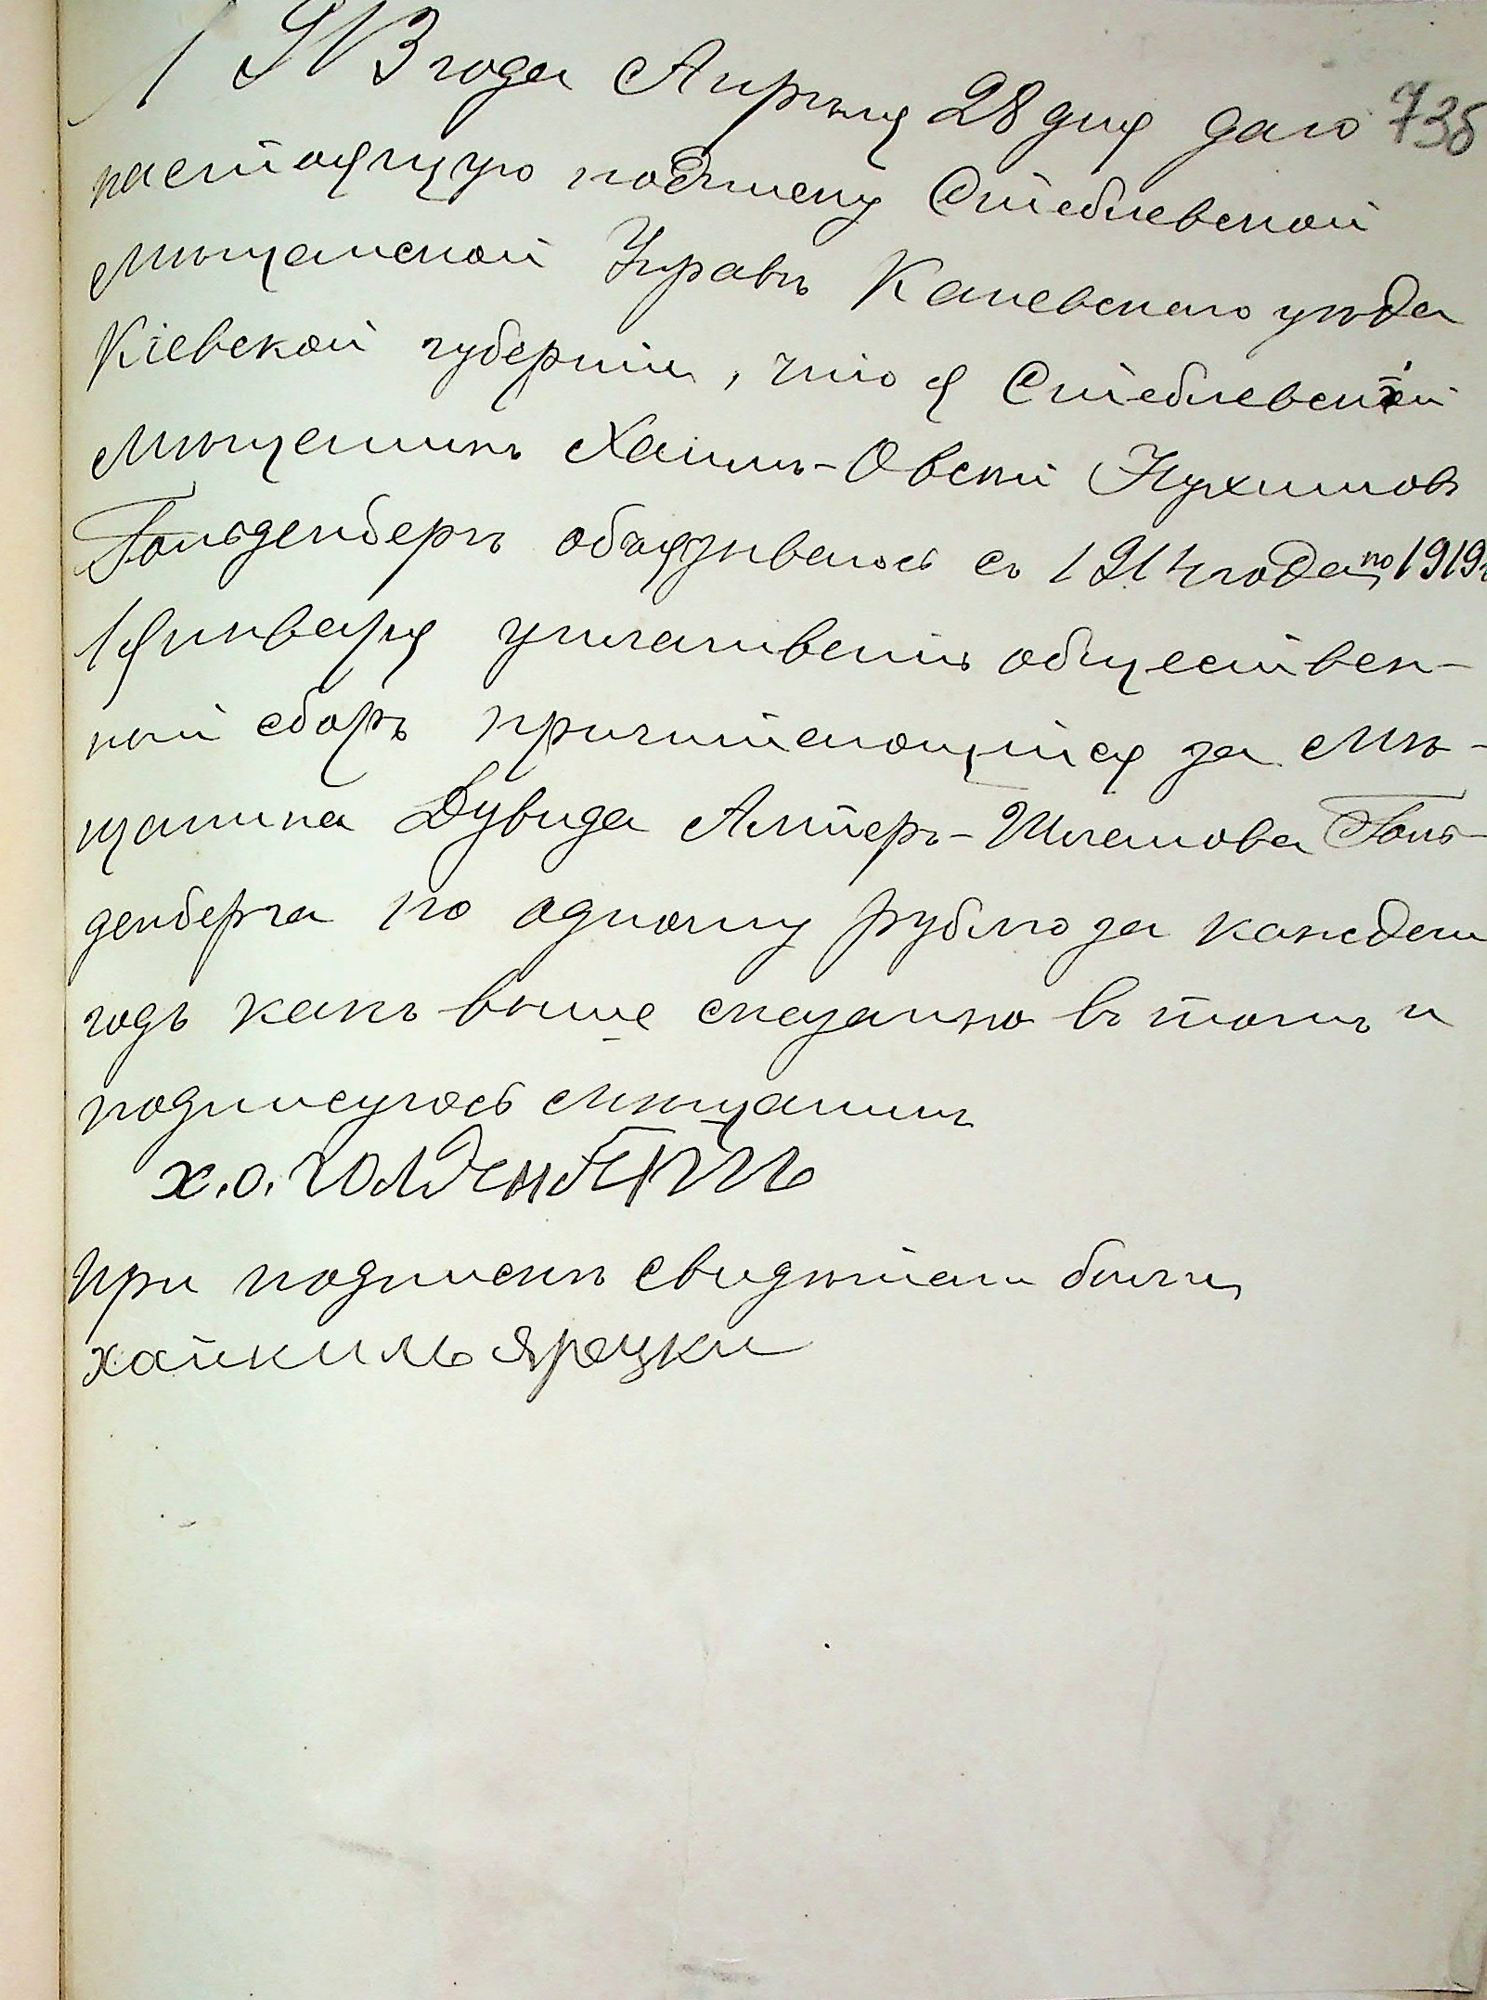 1913 года Апрѣля 28 дня даю 736
настоящую подписку Стеблевской
Мѣщанской Управѣ Каневскаго уѣзда
Кіевской губерніи, что я Стеблевскій
Мѣщанинъ Хаимъ-Овсій Нухимовъ
Гольденбергъ обязываюсь съ 1914 года по 1919 г
1 Января уплачивать обществен-
ный сборъ причитающійся за Мѣ-
щанина Дувида Алтеръ-Шлемова Голь-
денберга по одному рублю за каждый
годъ какъ выше сказанно въ томъ и
подписуюсь мѣщанинъ
Х.О. Голденбергъ
При подпискѣ свидѣтели были
хайкиль Ярецки